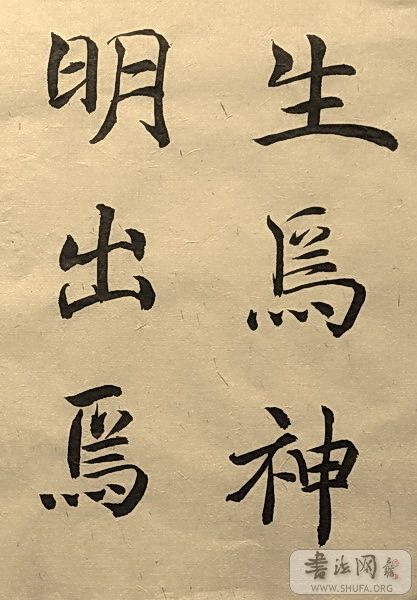 生焉神
明出焉
書法网
WWW.SHUFA.ORG